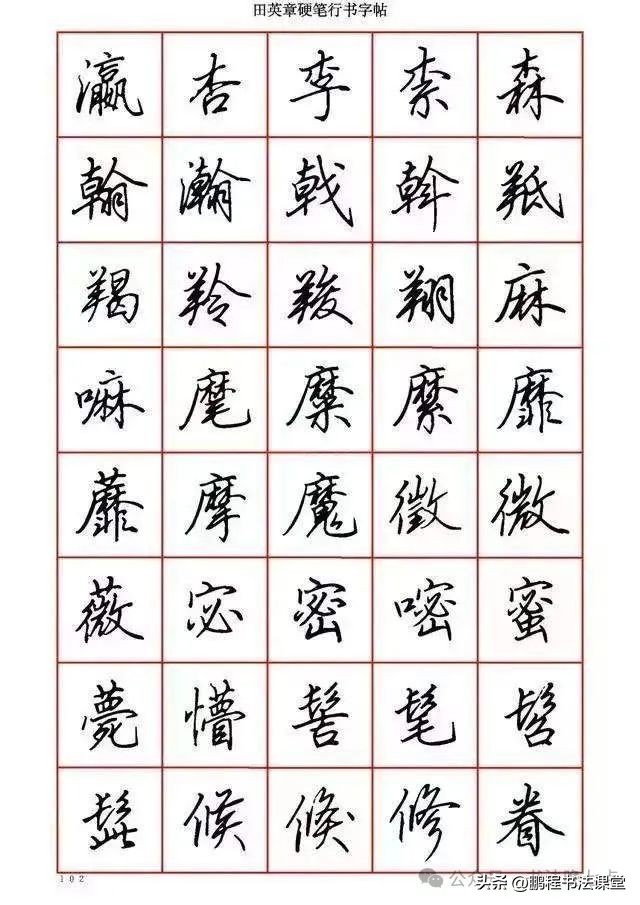 田英章硬笔行书字帖
瀛 杏 李 柰 森
翰 瀚 戟 斡 羝
羯 羚 羧 翔 麻
嘛 麾 糜 縻 靡
蘼 摩 魔 徵 微
薇 宓 密 嘧 蜜
薨 懵 髻 髦 髫
髭 候 倏 修 眷
102
头条 @鹏程书法课堂